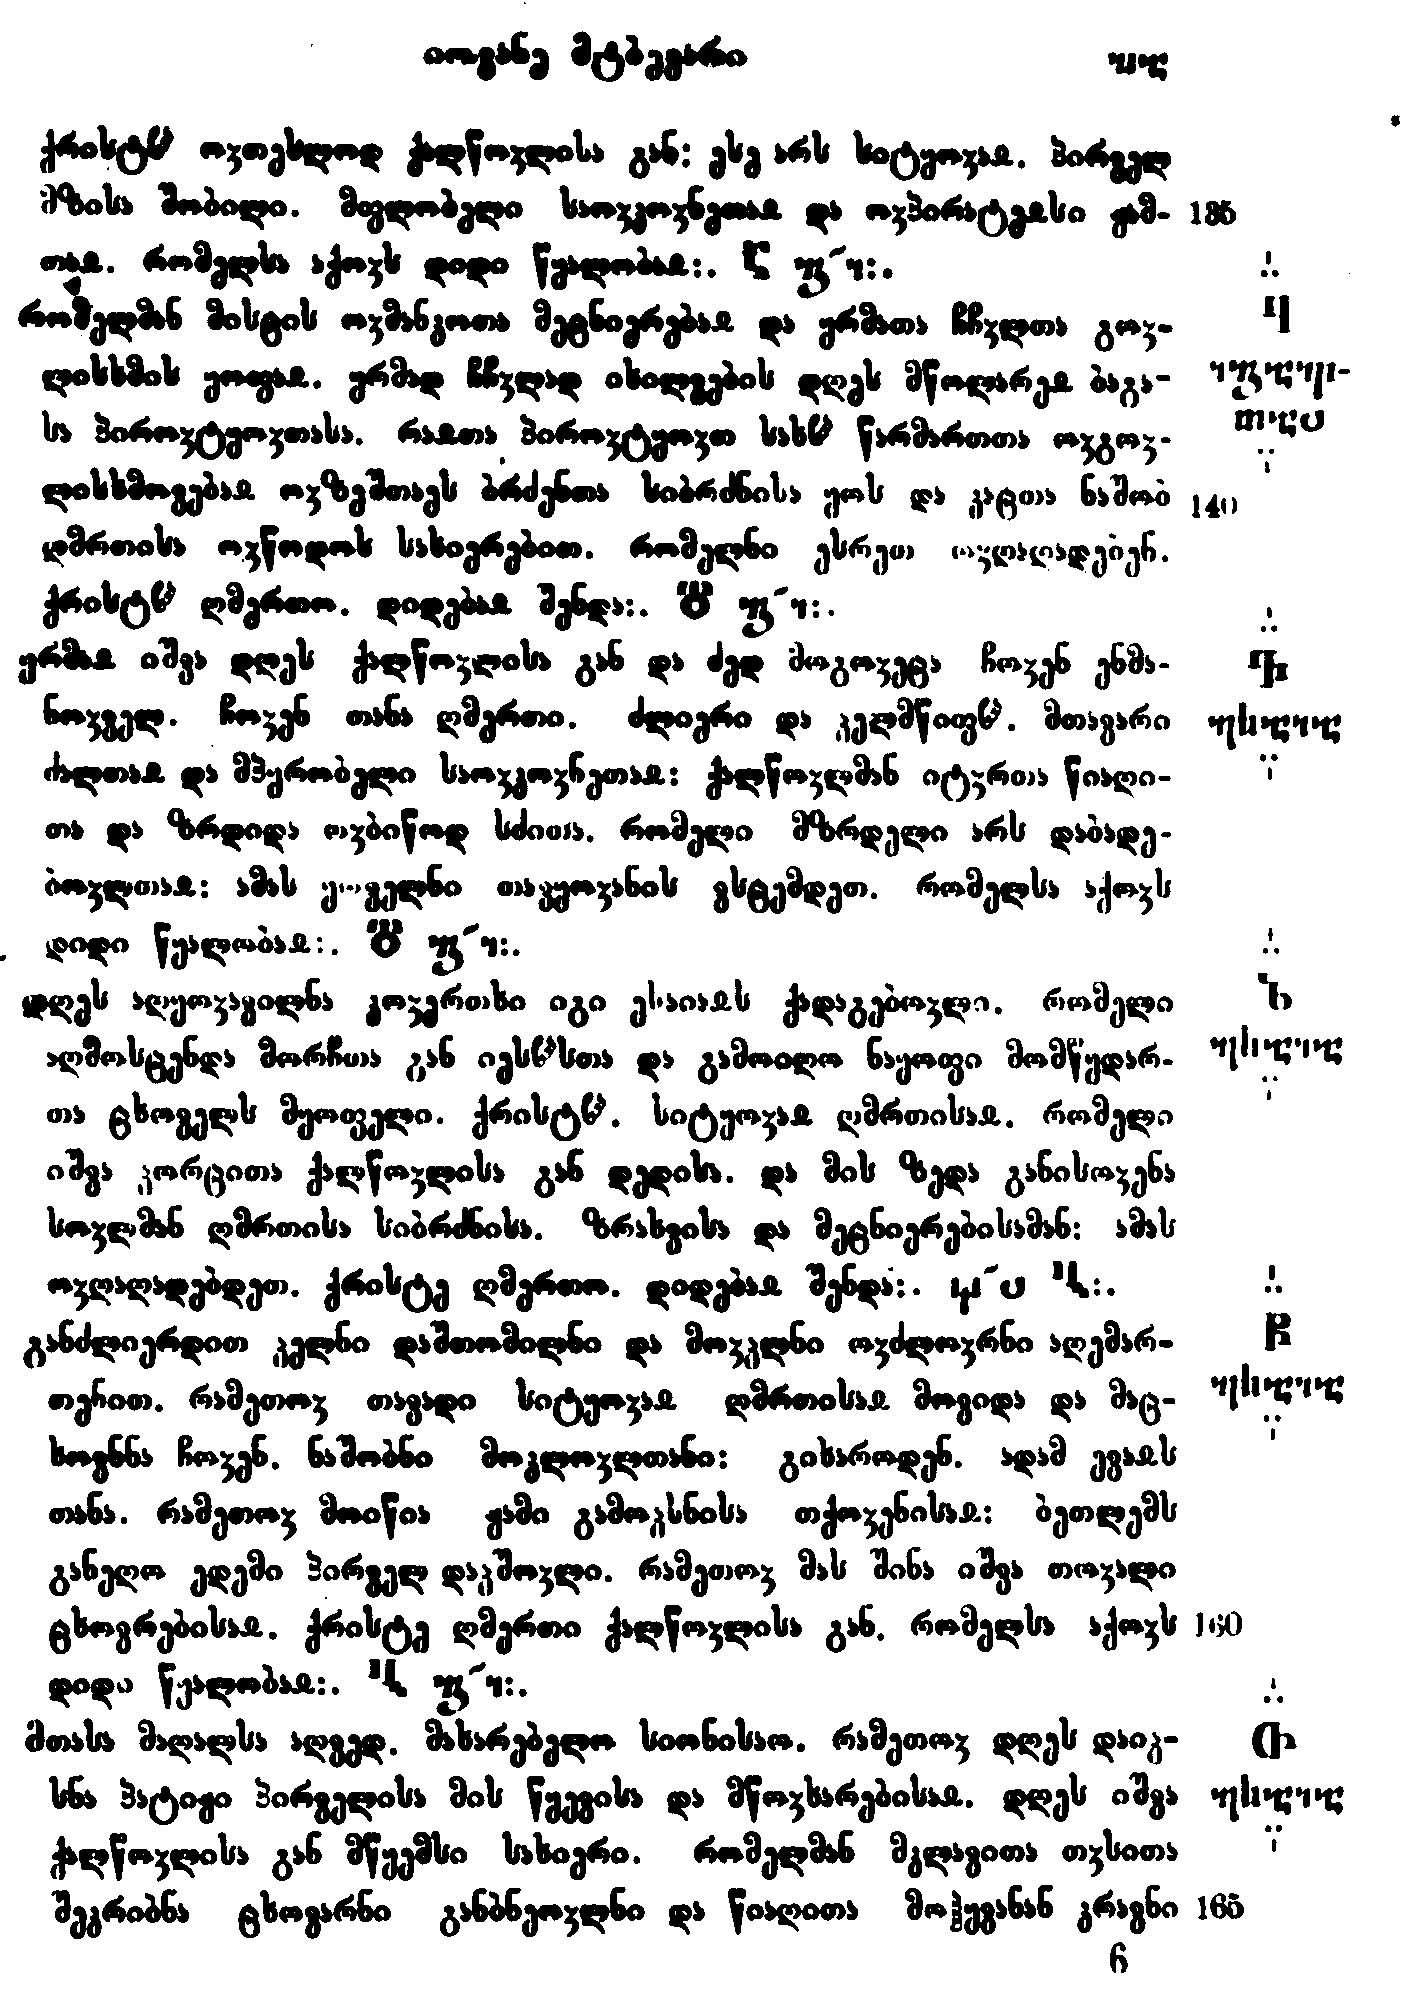 იოვანე მტბევარი
ქრისტჱ ოჳთესლოდ ქალწოჳლისა გან: ესე არს სიტყოჳაჲ. პირველ
მზისა შობილი. მფლობელი საოჳკოჳნეთაჲ და ოჳპირატეჲსი ჟამ- 135
თაჲ. რომელსა აქოჳს დიდი წყალობაჲ:.
რომელმან მისტის ოჳმანკოთა მეცნიერებაჲ და ყრმათა ჩჩჳლთა გოჳ-
ლისხმის ყოფაჲ. ყრმად ჩჩჳლად იხილვების დღეს მწოლარეჲ ბაგა-
სა პიროჳტყოჳთასა. რაჲთა პიროჳტყოჳთ სახჱ წარმართთა ოჳგოჳ-
ლისხმოვებაჲ ოჳზეშთაეს ბრძენთა სიბრძნისა ყოს და კაცთა ნაშობ 140
ღმრთისა ოჳწოდოს სახიერებით. რომელნი ესრეთ ოჳღაღადებენ.
ქრისტჱ ღმერთო. დიდებაჲ შენდა:.
ყრმაჲ იშვა დღეს ქალწოჳლისა გან და ძედ მოგოჳეცა ჩოჳენ ენმა-
ნოჳველ. ჩოჳენ თანა ღმერთი. ძლიერი და ჴელმწიფჱ. მთავარი
ძალთაჲ და მპყრობელი საოჳკოჳნეთაჲ: ქალწოჳლმან იტჳრთა წიაღი-
თა და ზრდიდა ოჳბიწოდ სძითა. რომელი მზრდელი არს დაბადე-
ბოჳლთაჲ: ამას ყოველნი თაყოჳანის ვსცემდეთ. რომელსა აქოჳს
დიდი წყალობაჲ:.
დღეს აღყოჳავილნა კოჳერთხი იგი ესაიაჲს ქადაგებოჳლი. რომელი
აღმოსცენდა მორჩთა გან იესჱსთა და გამოიღო ნაყოფი მომწყდარ-
თა ცხოველს მყოფელი. ქრისტჱ. სიტყოჳაჲ ღმრთისაჲ. რომელი
იშვა ჴორცითა ქალწოჳლისა გან დედისა. და მის ზედა განისოჳენა
სოჳლმან ღმრთისა სიბრძნისა. ზრახვისა და მეცნიერებისამან: ამას
ოჳღაღადებდეთ. ქრისტე ღმერთო. დიდებაჲ შენდა:.
განძლიერდით ჴელნი დაშთომილნი და მოჳჴლნი ოჳძლოჳრნი აღემარ-
თენით. რამეთოჳ თავადი სიტყოჳაჲ ღმრთისაჲ მოვიდა და მაც-
ხოვნნა ჩოჳენ. ნაშობნი მოკლოჳლთანი: გიხაროდენ. ადამ ევაჲს
თანა. რამეთოჳ მოიწია ჟამი გამოჴსნისა თქოჳენისაჲ: ბეთლემს
განეღო ედემი პირველ დაჴშოჳლი. რამეთოჳ მას შინა იშვა თოჳალი
ცხოვრებისაჲ. ქრისტე ღმერთი ქალწოჳლისა გან. რომელსა აქოჳს 160
დიდი წყალობაჲ:.
მთასა მაღალსა აღვედ. მახარებელო სიონისაო. რამეთოჳ დღეს დაიჴ-
სნა პატიჟი პირველისა მის წყევისა და მწოჳხარებისაჲ. დღეს იშვა
ქალწოჳლისა გან მწყემსი სახიერი. რომელმან მკლავითა თჳსითა
შეკრიბნა ცხოვარნი განბნეოჳლნი და წიაღითა მოჰყვანან კრავნი 165
6